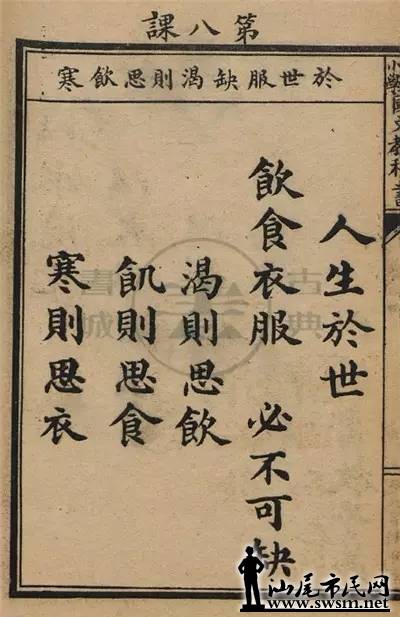 第八課
於世服缺渴則思飲寒
人生於世
飲食衣服 必不可缺
渴則思飲
飢則思食
寒則思衣
小學國文教科書
古典書城
汕尾市民网
www.swsm.net